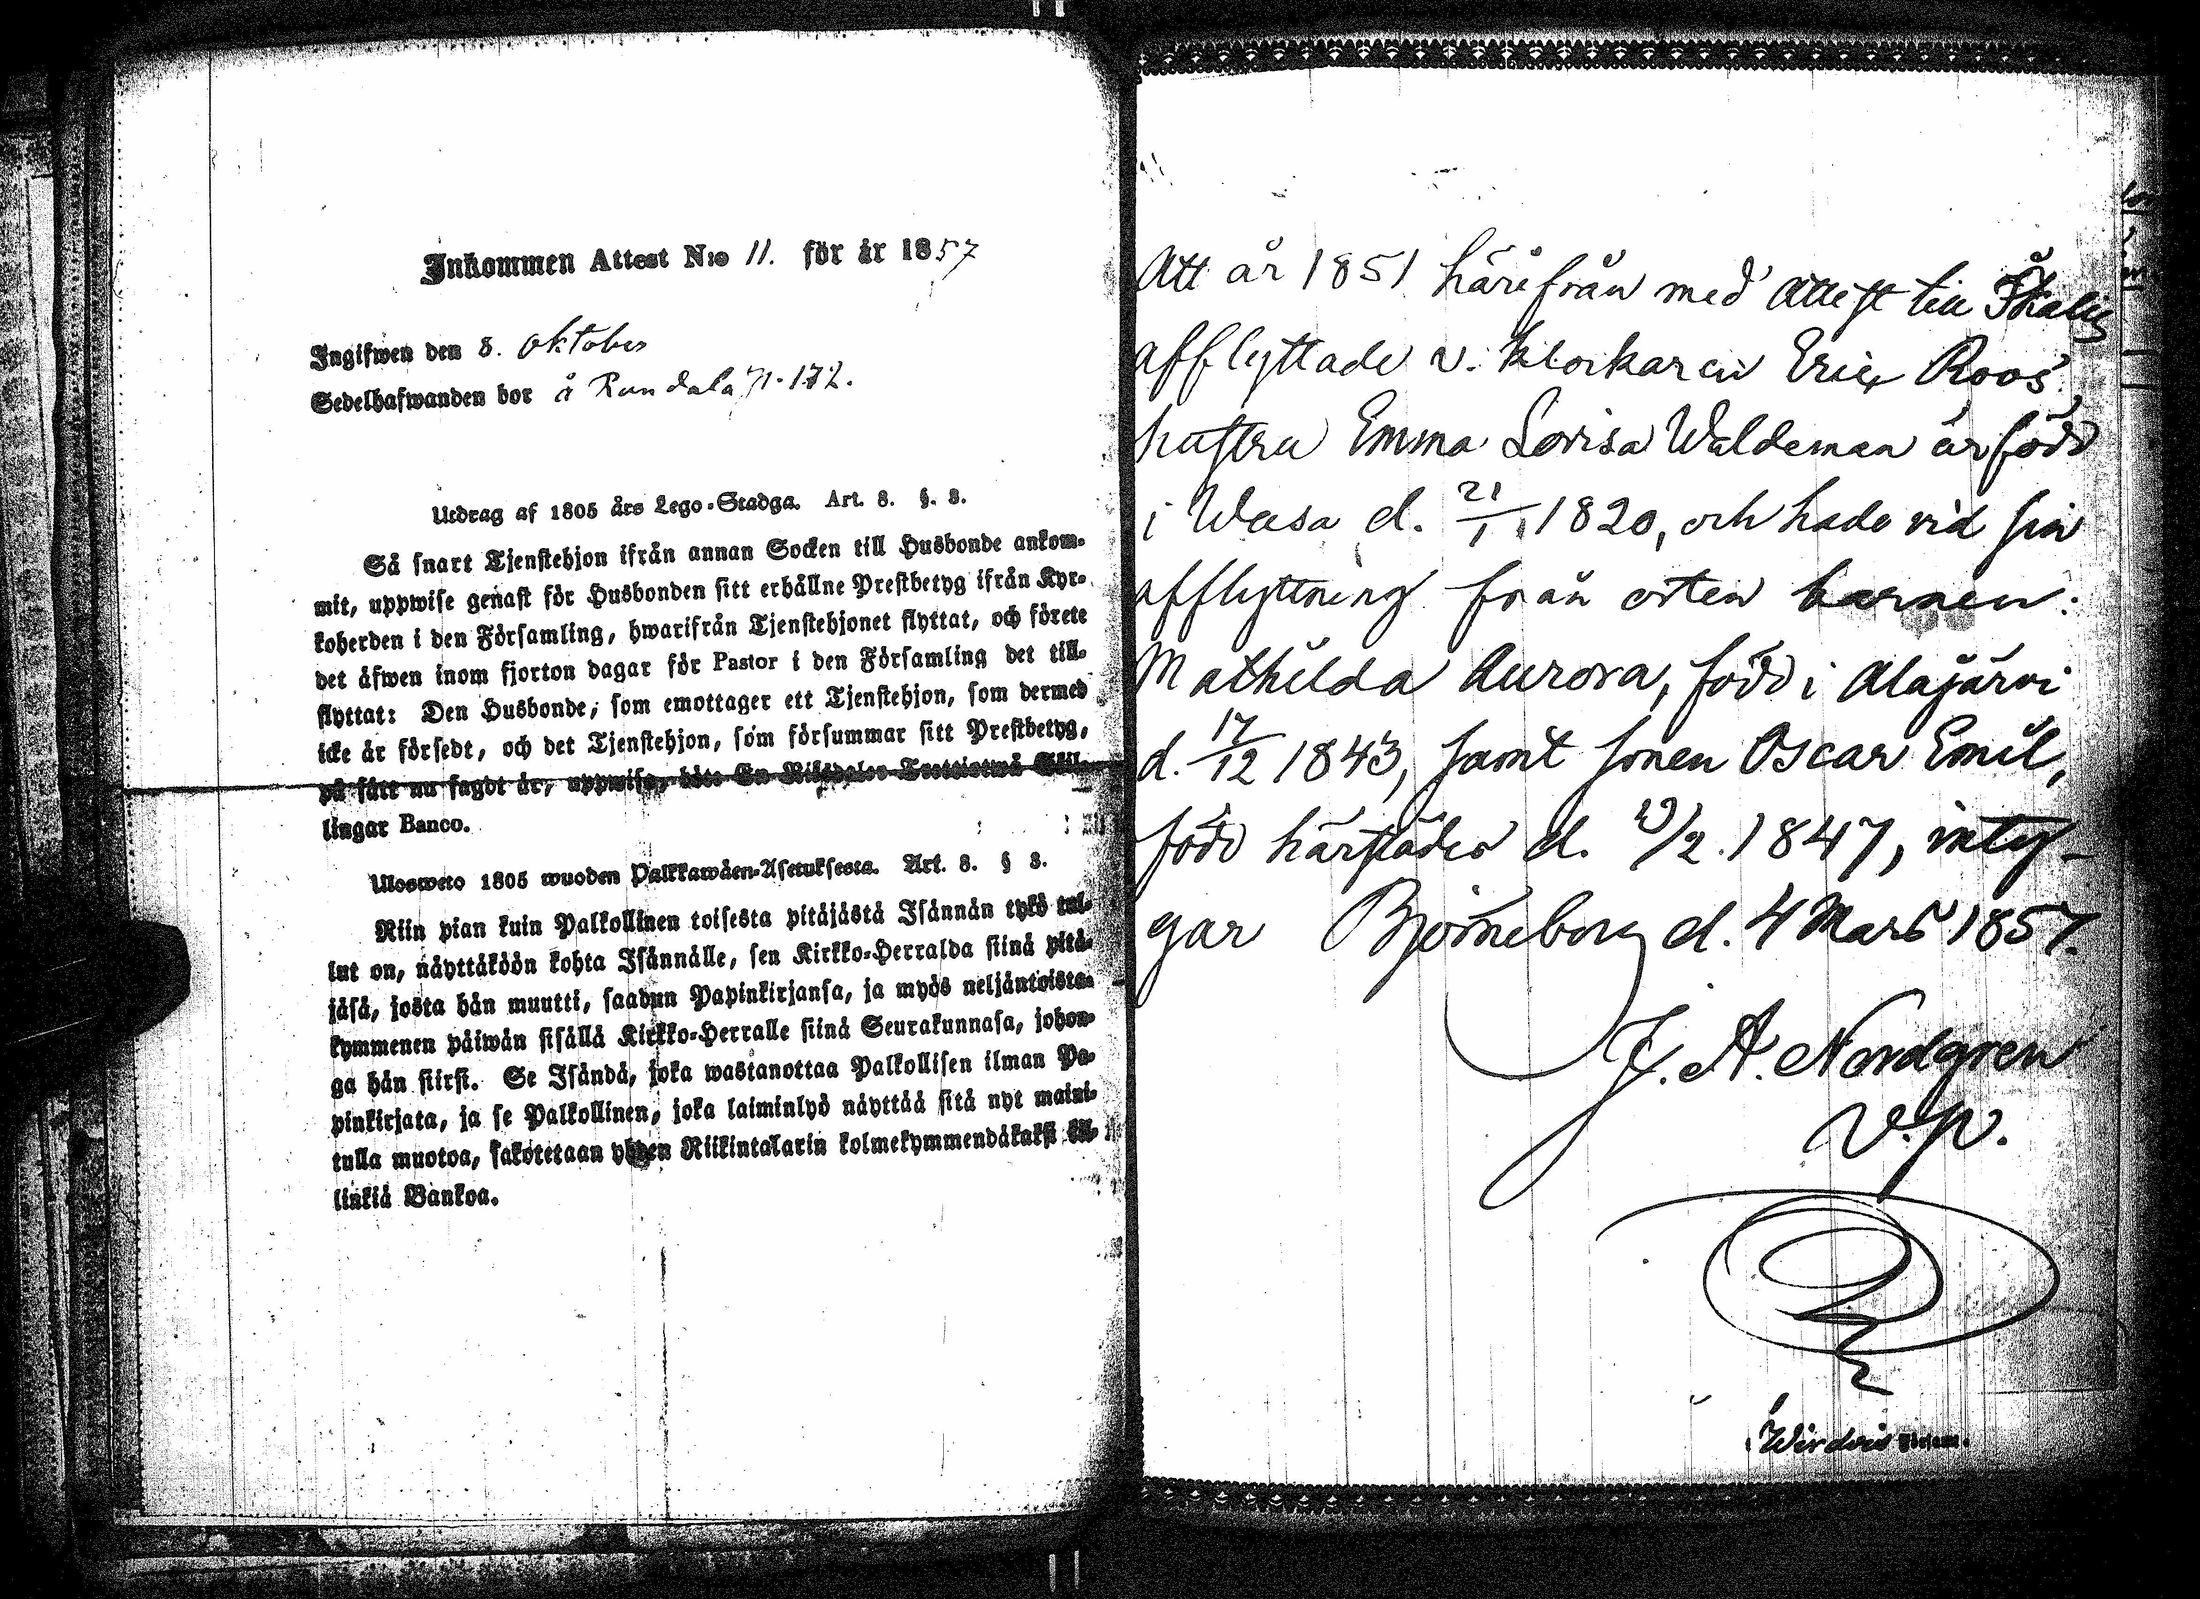 Inkommen Attest N:o 11. för år 1857
Ingifwen den 8. oktober
Sedelhafwanden bor å Rundala 71-172.
Utdrag af 1805 års Lego-Stadga. Art. 8. §. 3.
Så snart Tjenstehjon ifrån annan Socken till Husbonde ankom-
mit, uppwise genast för Husbonden sitt erhållne Prestbetyg ifrån Kyr-
koherden i den Församling, hwarifrån Tjenstehjonet flyttat, och förete
det äfwen inom fjorton dagar för Pastor i den Församling det till-
flyttat: Den Husbonde, som emottager ett Tjenstehjon, som dermed
icke är försedt, och det Tjenstehjon, som försummar sitt Prestbetyg,
på sätt nu sagdt är, uppwisa, böte En Riksdaler Trettiotwå Skil-
lingar Banco.
Ulosweto 1805 wuoden Palkkawäen-Asetuksesta. Art. 8. § 3.
Niin pian kuin Palkollinen toisesta pitäjästä Isännän tykö tul-
lut on, näyttäköön kohta Isännälle, sen Kirkko-Herralda siinä pitä-
jäsä, josta hän muutti, saadun Papinkirjansa, ja myös neljäntoista-
kymmenen päiwän sisällä Kirkko-Herralle siinä Seurakunnasa, johon-
ga hän siirsi. Se Isändä, joka wastanottaa Palkollisen ilman Pa-
pinkirjata, ja se Palkollinen, joka laiminlyö näyttää sitä nyt maini-
tulla muotoa, sakotetaan yhden Riikintalarin kolmekymmendäkaksi kil-
linkiä Bankoa.
Att år 1851 härifrån med attest till
afflyttade v. klockaren Eric Roos
hustru Emma Lovisa Waldeman är född
i Wasa d. 21/1 1820, och hade vid sin
afflyttning från orten barnen:
Mathilda Aurora, född i Alajärvi
d. 17/12 1843, samt sonen Oscar Emil,
född härstädes d. 19/2. 1847, inty-
gar Björneborg d. 4 Mars 1857.
J. A. Nordgren
v. p.
Wirdois Försam.